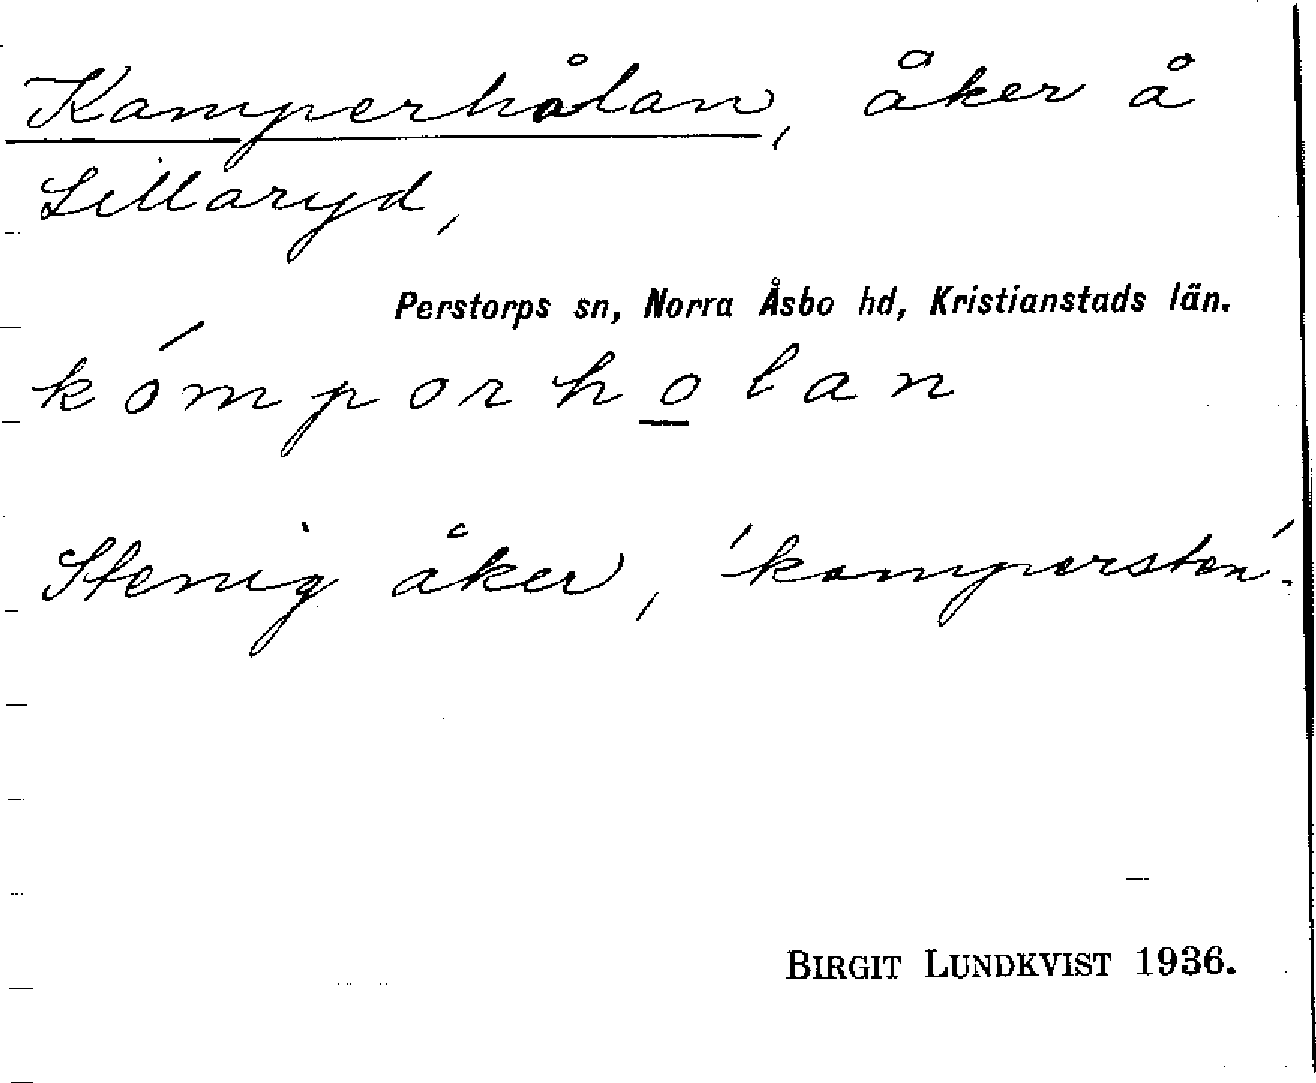 Kamperhålan, åker å
Lillaryd,
Perstorps sn, Norra Åsbo hd, Kristianstads län.
kómporho̲lan
Stenig åker, 'kampersten'.
BIRGIT LUNDKVIST 1936.